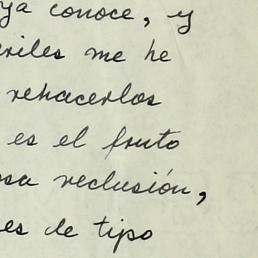 ya conoce, y
eriles me he
rehacerlos
es el fruto
osa reclusión,
es de tipo